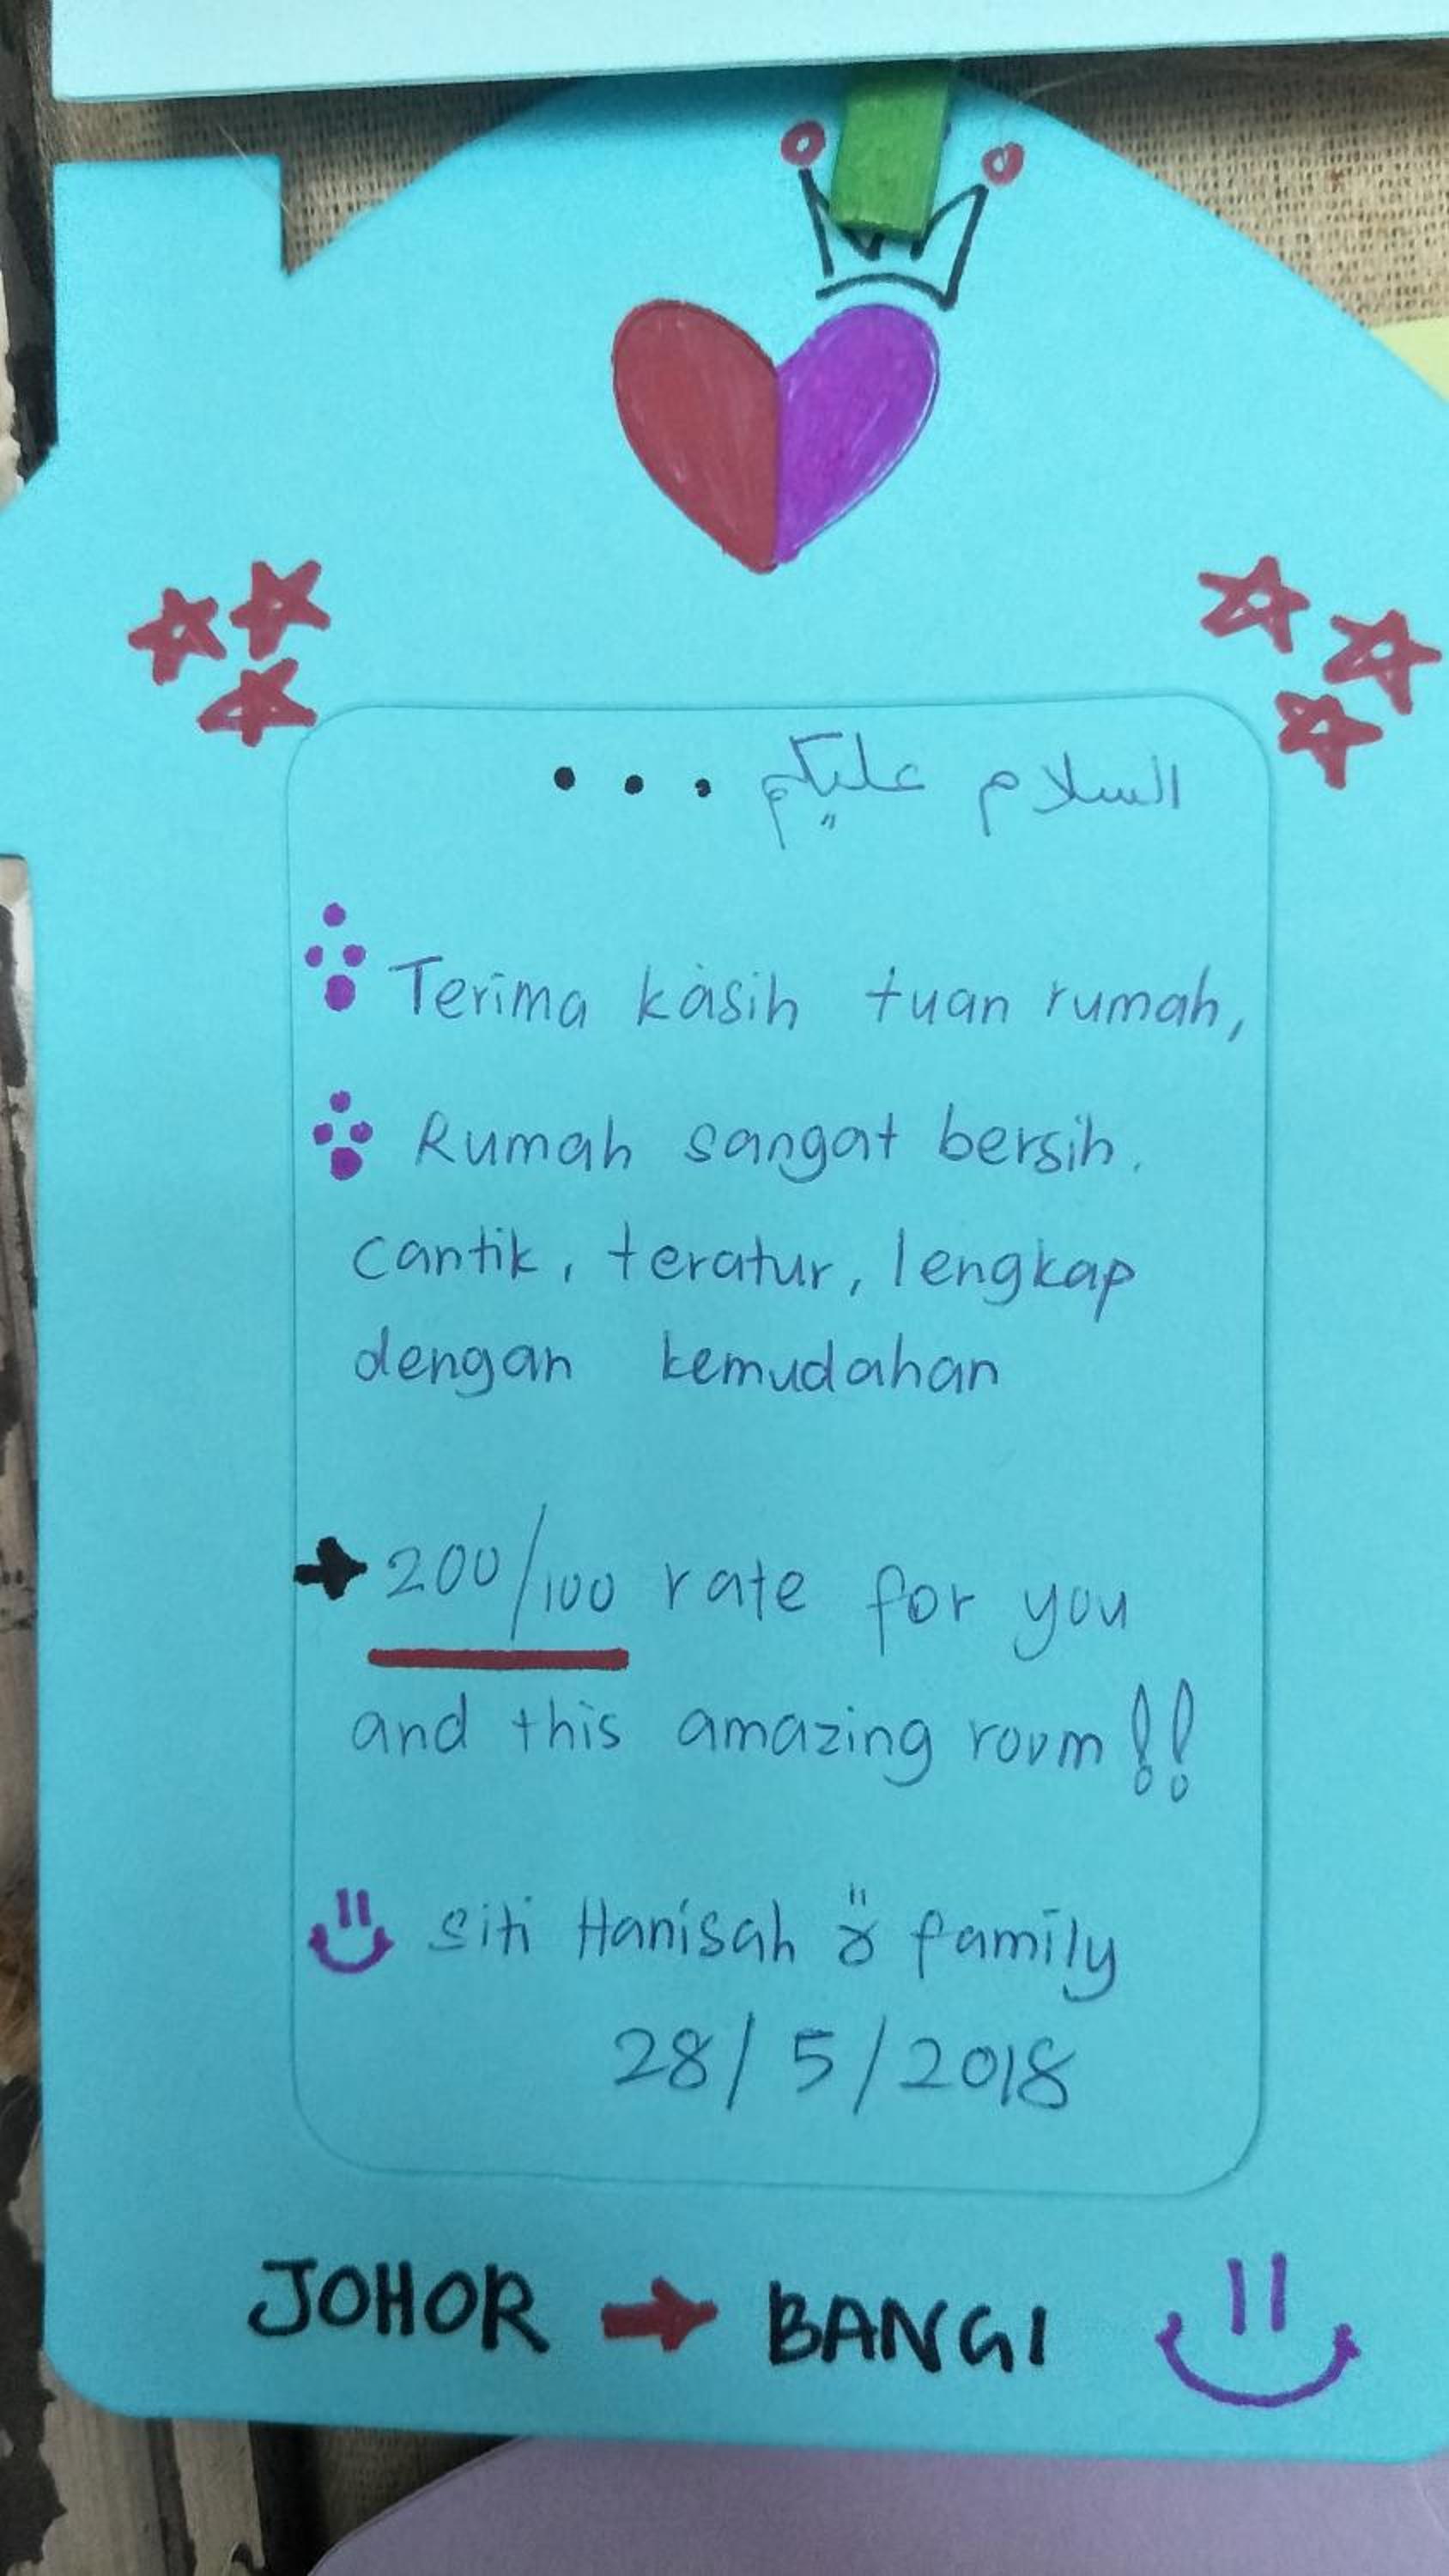 السلام عليكم ...
Terima kasih tuan rumah,
Rumah sangat bersih.
cantik, teratur, lengkap
dengan kemudahan
→ 200/100 rate for you
and this amazing room!!
Siti Hanisah & family
28/5/2018
JOHOR → BANGI